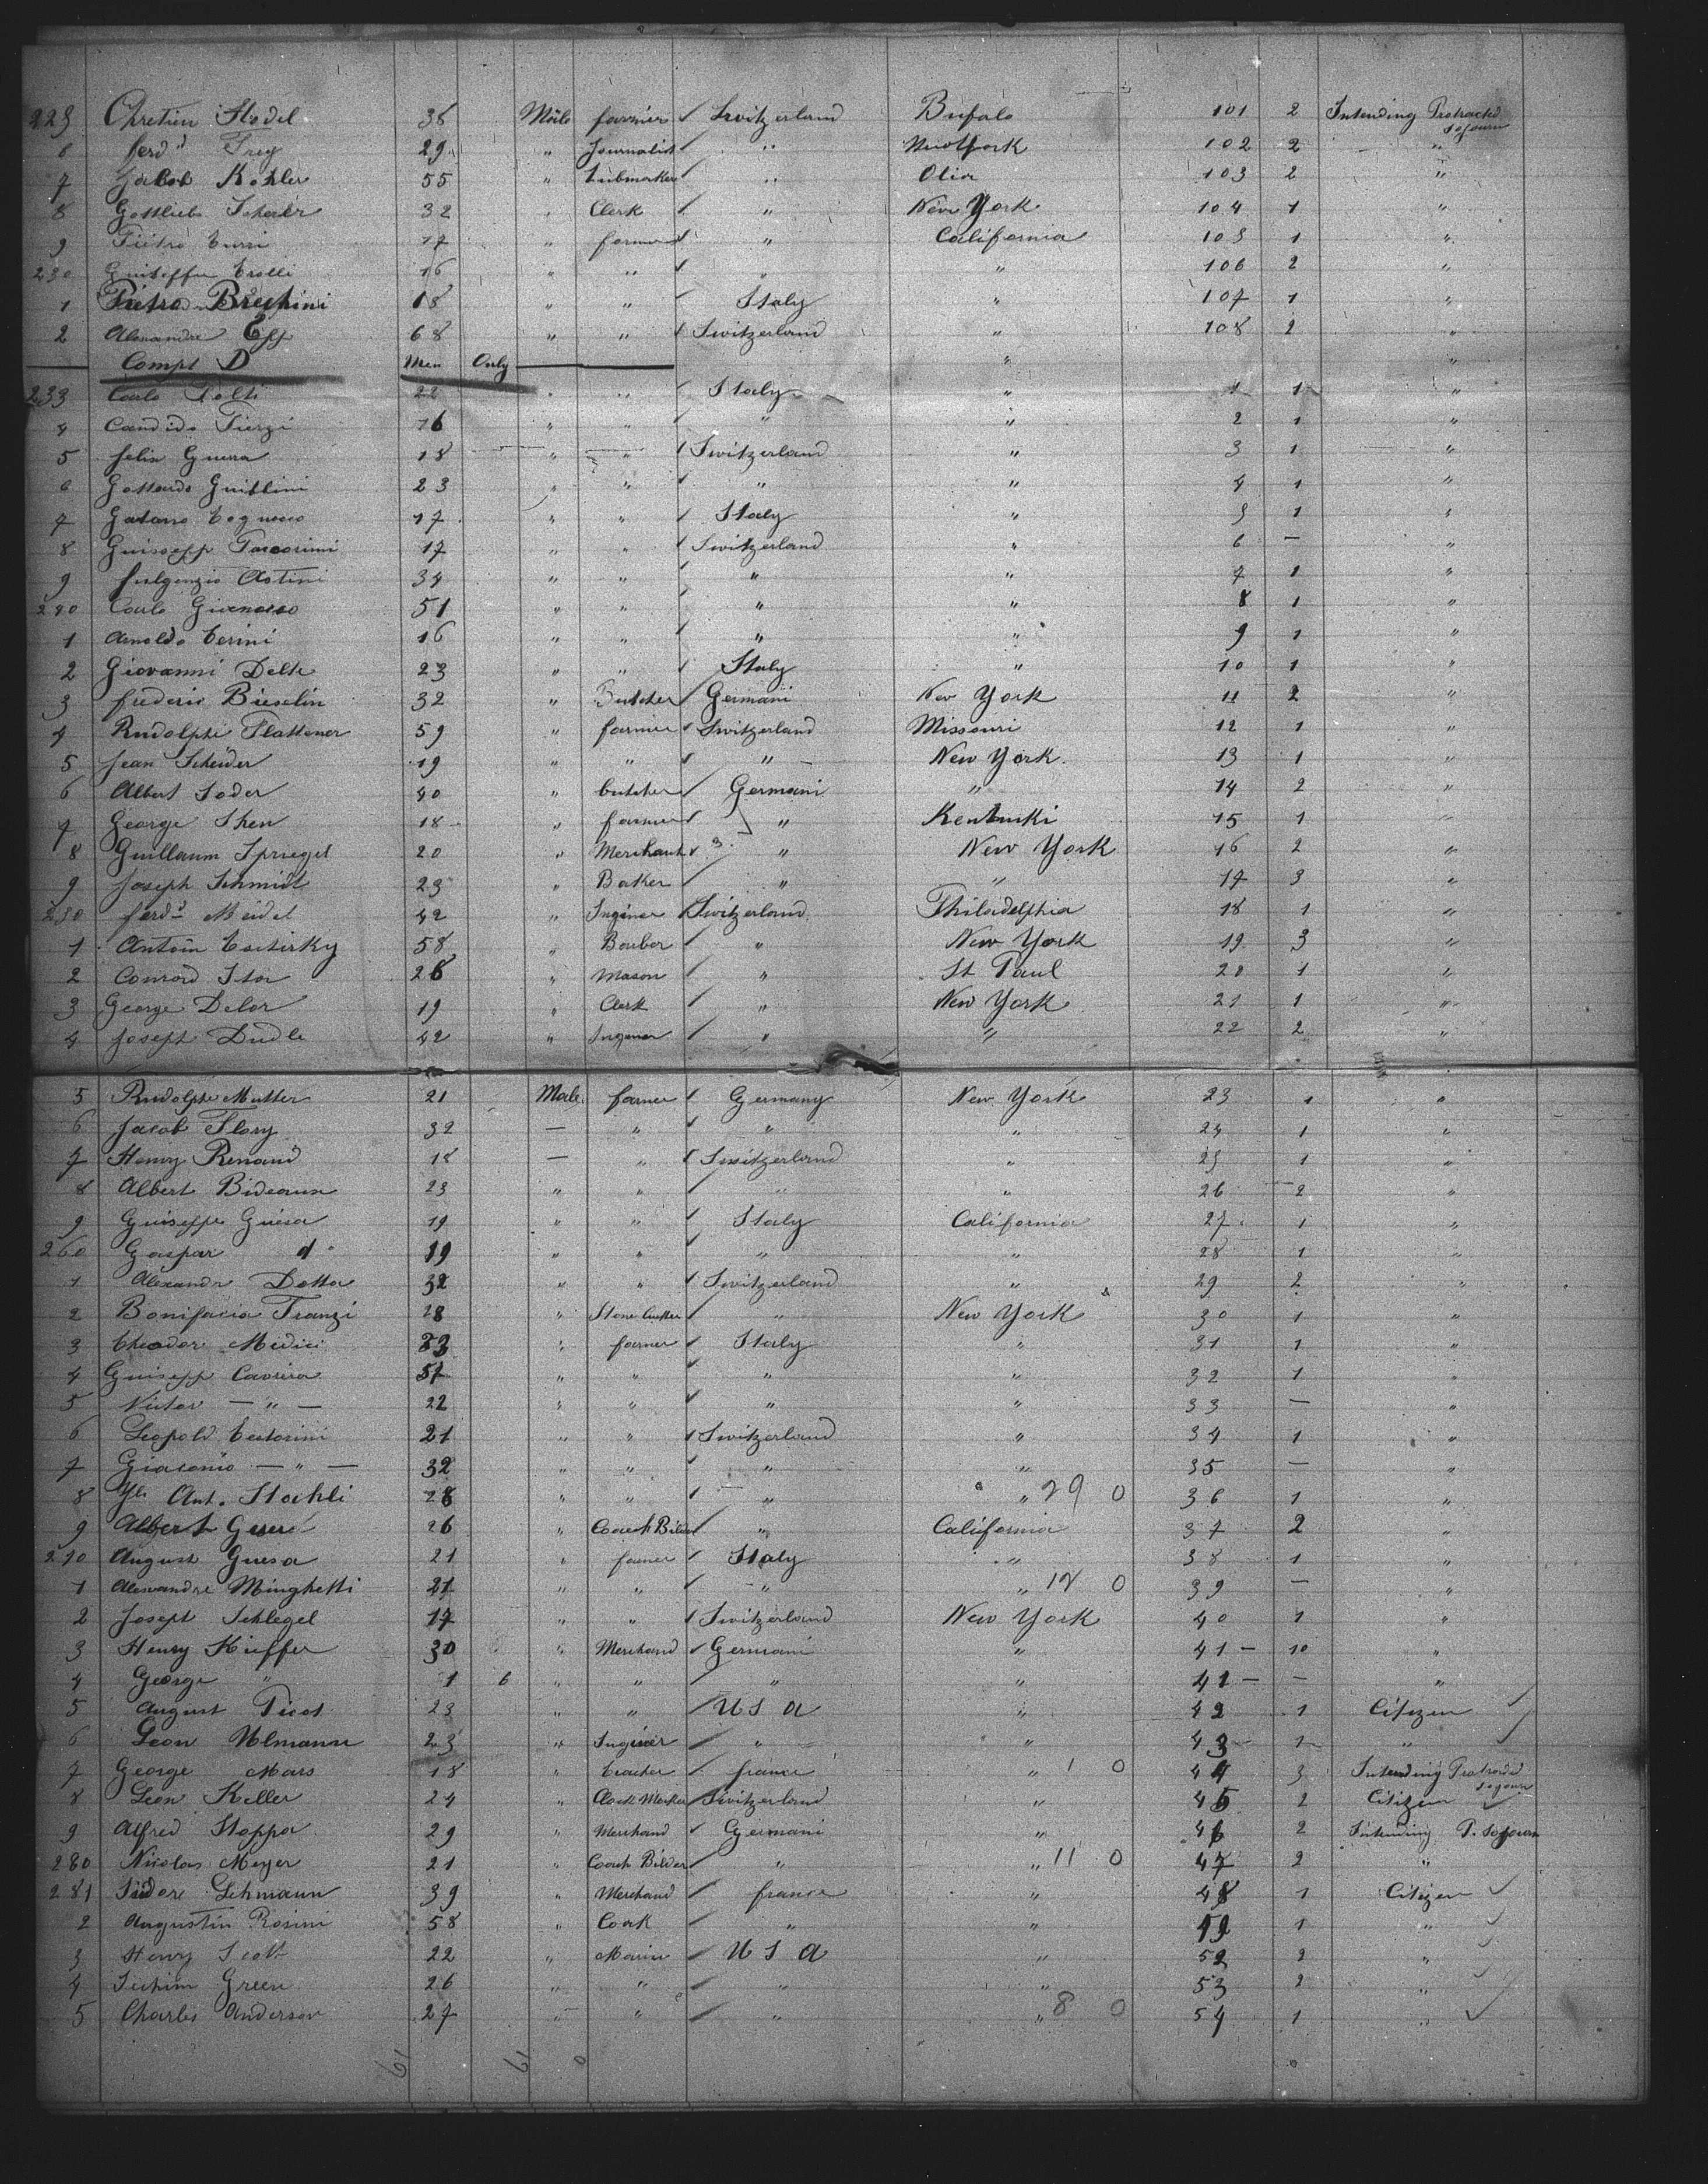 225 Chretien Hodel 36 Male farmer Switzerland Bufalo 101 2 Intending Protracted sojourn
6 ferdd Frey 29 " Journalist " New York 102 2 "
7 Jakob Kohler 55 " " 103 2 "
8 Gottlieb Scherer 32 " Clerk " New York 104 1 "
9 Pietro 17 " farmer " California 105 1 "
230 16 " " " " 106 2 "
1 Pietro 18 " " Italy " 107 1 "
2 Alexandre Epp 68 " " Switzerland " 108 2 "
Compt D Men Only " "
233 Carlo 22 " " Italy " 1 1 "
4 Candido 16 " " " " 2 1 "
5 felix Guerra 18 " " Switzerland " 3 1 "
6 Gottardo 23 " " " " 4 1 "
7 17 " " Italy " 5 1 "
8 Guisepp 17 " " Switzerland " 6 — "
9 fulgenzio 34 " " " " 7 1 "
240 Carlo 51 " " " " 8 1 "
1 Arnoldo 16 " " " " 9 1 "
2 Giovanni 23 " " Italy " 10 1 "
3 frederic 32 " Butcher Germani New York 11 2 "
4 Rudolphe 59 " farmer Switzerland Missouri 12 1 "
5 Jean Scheider 19 " " " New York 13 1 "
6 Albert Soder 40 " butcher Germani " 14 2 "
7 George 18 " farmer " Kentuki 15 1 "
8 Guillaum Spriegel 20 " Merchant " New York 16 2 "
9 Joseph Schmidt 23 " Baker " " 17 3 "
250 ferdd Meidel 42 " Inginer Switzerland Philadelphia 18 1 "
1 Antoin 58 " Barber " New York 19 3 "
2 Conrad 26 " Mason " St Paul 20 1 "
3 George Delor 19 " Clerk " New York 21 1 "
4 Joseph Dudle 42 " " " 22 2 "
5 Rudolphe Mutter 21 Male farmer Germany New York 23 1 "
6 Jacob Flory 32 — " " " 24 1 "
7 Henry Renaud 18 — " Switzerland " 25 1 "
8 Albert 23 " " " " 26 2 "
9 Guiseppe 19 " " Italy California 27 1 "
260 Gaspar do 19 " " " " 28 1 "
1 Alexandr Dotta 32 " " Switzerland " 29 2 "
2 Bonifacio Franzi 28 " Stone Cutter " New York 30 1 "
3 Theodor Medici 23 " farmer Italy " 31 1 "
4 Guisepp 57 " " " " 32 1 "
5 Victor — " — 22 " " " " 33 — "
6 Leopold 21 " " Switzerland " 34 1 "
7 Giacomo — " — 32 " " " " 35 — "
8 Ant. Stoehli 28 " " " " 29 0 36 1 "
9 Albert 26 " Coach Bilder " California 37 2 "
270 August 21 " farmer Italy " 38 1 "
1 Alexandre Minghetti 21 " " " " 12 0 39 — "
2 Joseph Schlegel 17 " " Switzerland New York 40 1 "
3 Henry Kieffer 30 " Merchand Germani " 41 — 10 "
4 George " 1 6 " " " " 41 — — "
5 August Picot 23 " " U S A " 42 1 Citizen
6 Leon Ulmann 23 " Inginier " " 43 1 "
7 George Mars 18 " Teacher france " 1 0 44 3 Intending Protracted sojourn
8 Leon Keller 24 " Clock Maker Switzerland " 45 2 Citizen
9 Alfred Stoppa 29 " Merchand Germani " 46 2 Intending P. Sojourn
280 Nicolas Meyer 21 " Coach Bilder " " 11 0 47 2 "
281 Isidore Lehmann 39 " Merchand france " 48 1 Citizen
2 Augustin Rosini 58 " Cook " " 1 "
3 Henry Scott 22 " Marin U S A " 52 2 "
4 Green 26 " " " " 53 2 "
5 Charles Anderson 27 " " " " 8 0 54 1 "
61 61 0